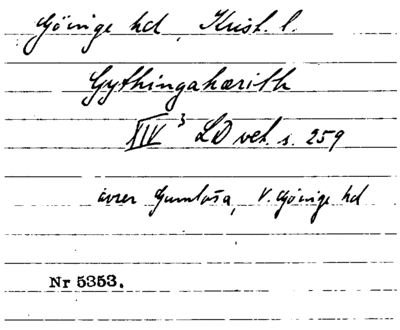 Göinge hd, Krist. l.
Gythingahærith
XIV 3 LD vet. s. 259
över Gumlösa, V. Göinge hd
Nr 5353.